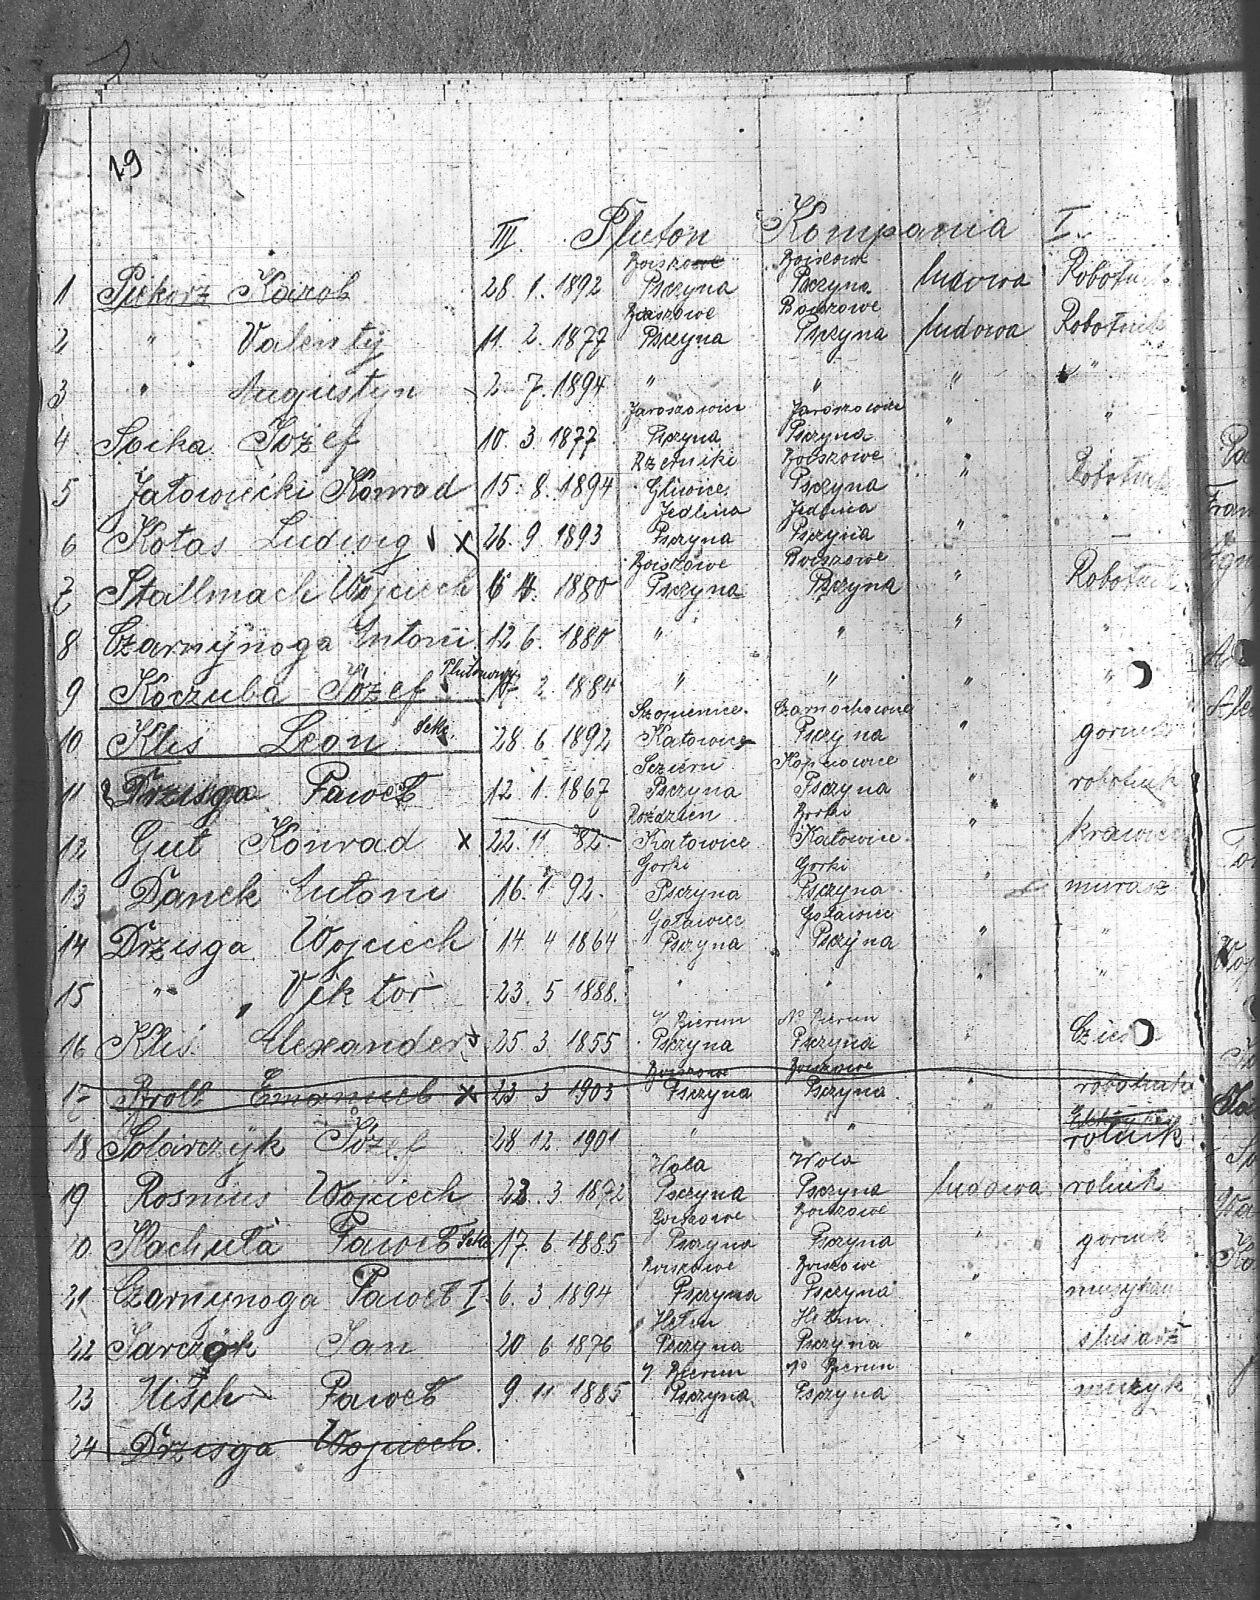 19
III. Pluton Kompania I.
Boiszowe Boiszowe
1 Piekorz Karol 28 1. 1892 Pszczyna Pszczyna ludowa Robotnik
Boiszowe Boiszowe
2 " Valenty 11 2. 1877 Pszczyna Pszczyna ludowa Robotnik
3 " Augustyn 2 7. 1894 " " " "
Jaroszowice Jaroszowice
4 Soika Józef 10. 3. 1877 Pszczyna Pszczyna " "
Rzetniki Boiszowe
5 Jatowiecki Konrad 15. 8. 1894 Gliwice Pszczyna " Robotnik
Jedlina Jedlina
6 Kotas Ludwig x 26. 9 1893 Pszczyna Pszczyna " "
Boiszowe Boiszowe
7 Stallmach Wojciech 1880 Pszczyna Pszczyna " Robotnik
8 Czarnynoga Antoni 12 6. 1880 " " " "
9 Koczuba Józef Plutonowy 2. 1884 " " " "
Szopienice Czarnochowice
10 Klis Leon Sekc. 28. 6 1892 Katowice Pszczyna " gornik
11 Drzisga Paweł 12 1. 1867 Pszczyna Pszczyna " robotnik
Roździen
12 Gut Konrad x 22. 11 82. Katowice Katowice " krawiec
Gorki Gorki
13 Danek Antoni 16. 1 92. Pszczyna Pszczyna " murarz
Goławiec Goławiec
14 Drzisga Wojciech 14. 4 1864 Pszczyna Pszczyna " "
15 " Viktor 23. 5 1888. " " " "
N Bierun N Bierun
16 Klis Alexander 25. 3. 1855 Pszczyna Pszczyna " Cies
Boiszowe Boiszowe
17 Broll Emanuel x 23 3 1903 Pszczyna Pszczyna " robotnik
18 Solarczyk Józef 28 12. 1901 " " " rolnik
Wola Wola
19 Rosmus Wojciech 22. 3 1872 Pszczyna Pszczyna ludowa rolnik
Boiszowe Boiszowe
20 Machuta Paweł Sekc 17. 6. 1885 Pszczyna Pszczyna " gornik
Boiszowe Boiszowe
21 Czarnynoga Paweł I. 6. 3 1894 Pszczyna Pszczyna "
22 Jarczyk Jan 20 6 1876 Pszczyna Pszczyna " slusarz
N Bierun N Bierun
23 Paweł 9. 11 1885 Pszczyna Pszczyna muzyk
24 Drzisga Wojciech.